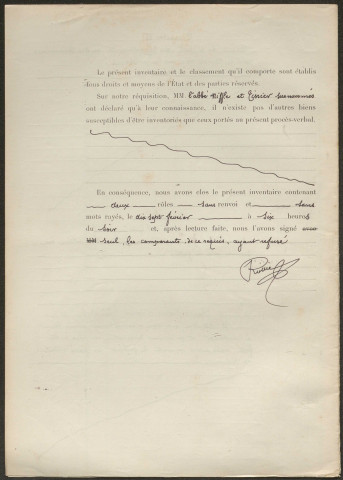 Le présent inventaire et le classement qu'il comporte sont établis
tous droits et moyens de l'État et des parties réservés.
Sur notre réquisition, MM l'abbé Riffle et Tissier susnommés
ont déclaré qu'à leur connaissance, il n'existe pas d'autres biens
susceptibles d'être inventoriés que ceux portés au présent procès-verbal.
En conséquence, nous avons clos le présent inventaire contenant
deux rôles sans renvoi et sans
mots rayés, le dix sept février à six heures
du soir et, après lecture faite, nous l'avons signé
seul, les comparants, de ce requis, ayant refusé